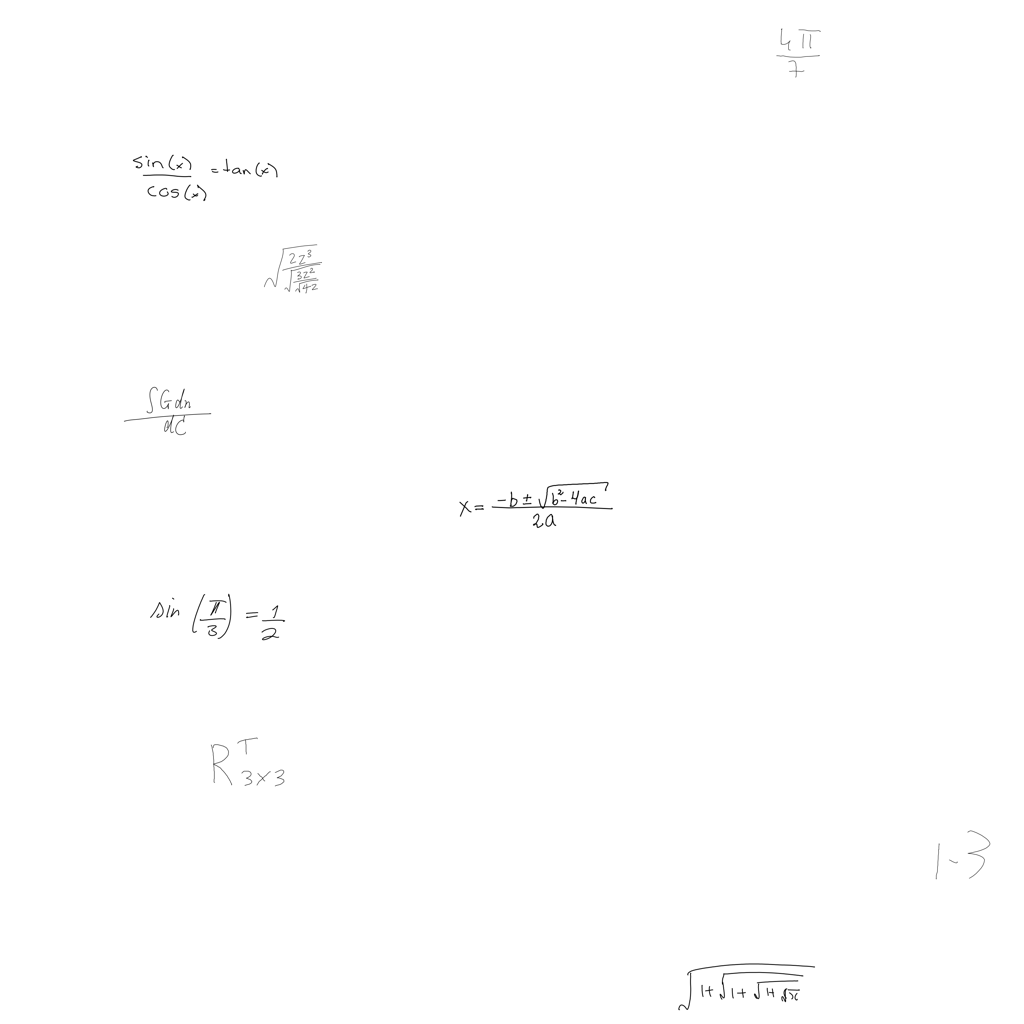 \frac{4\pi}{7}
\frac{\sin(x)}{\cos(x)} = \tan(x)
\sqrt{\frac{2z^3}{\sqrt{\frac{3z^2}{\sqrt{4z}}}}}
\frac{\int G dn}{dC}
x = \frac{-b \pm \sqrt{b^2 - 4ac}}{2a}
\sin\left(\frac{\pi}{3}\right) = \frac{1}{2}
R_{3 \times 3}^T
1-3
\sqrt{1+\sqrt{1+\sqrt{1+\sqrt{x}}}}